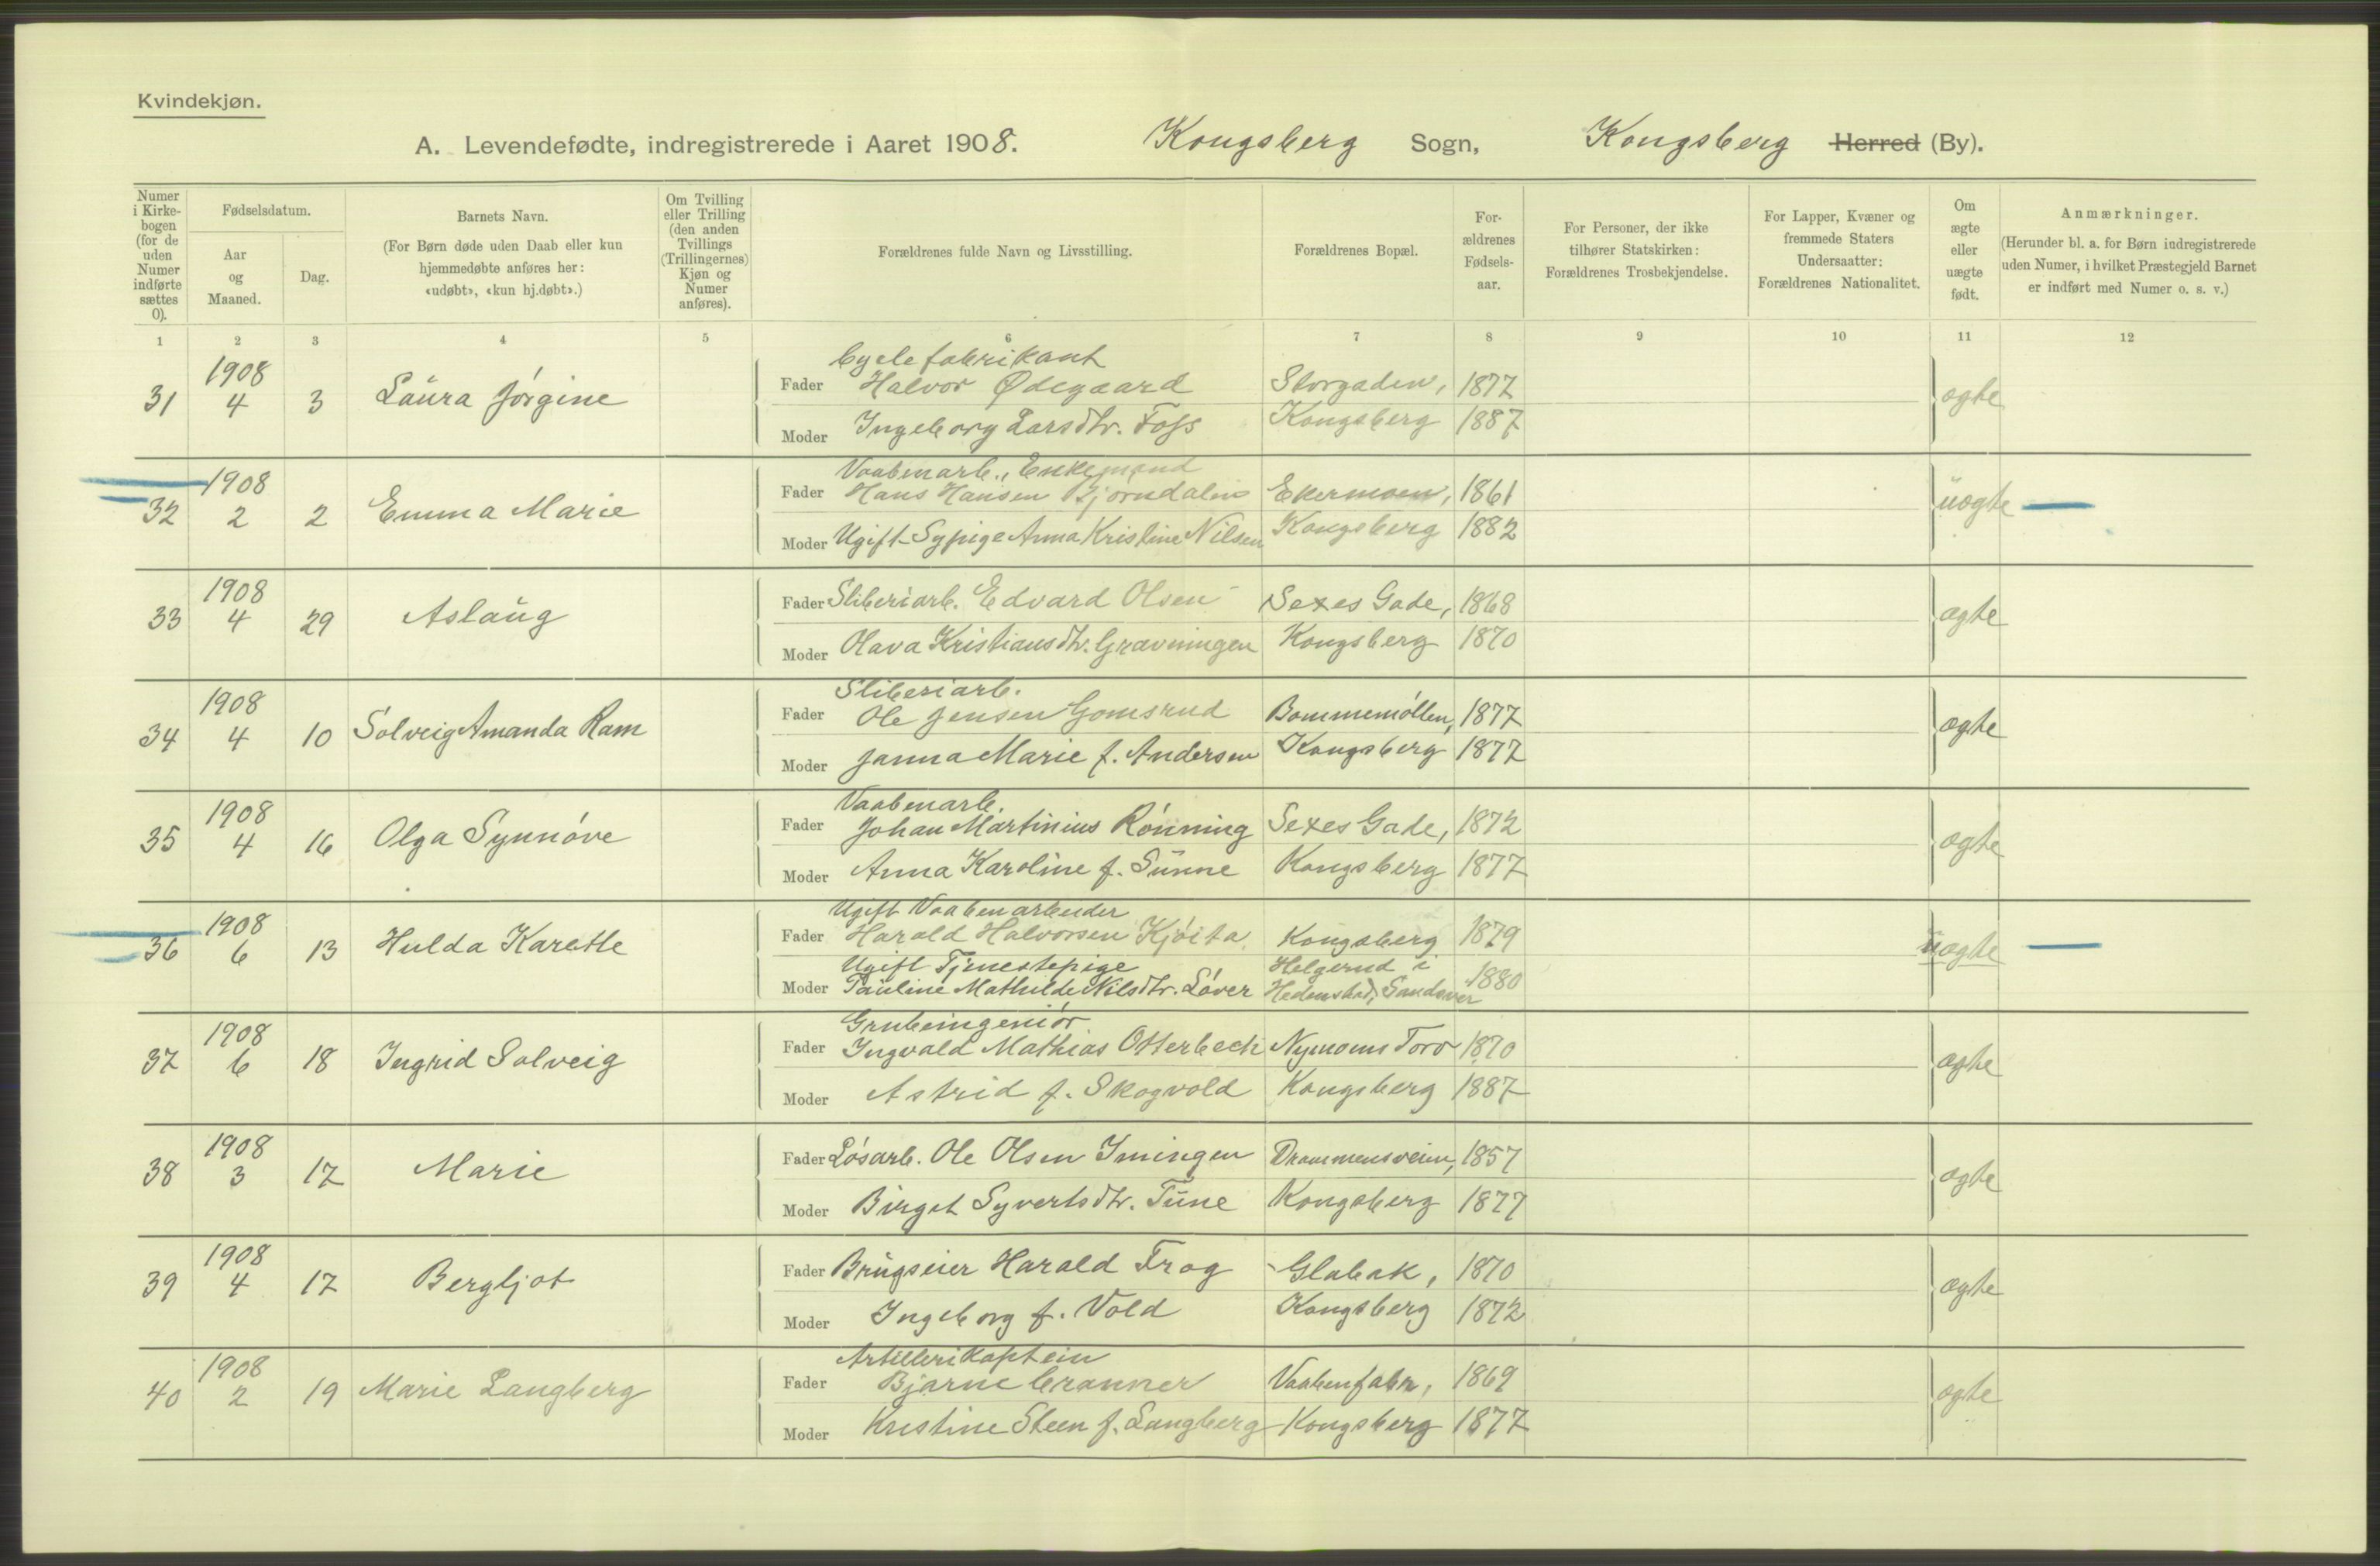 Kvindekjøn.
A. Levendefødte, indregistrerede i Aaret 1908. Kongsberg Sogn, Kongsberg Herred (By).
Numer i Kirke-bogen (for de uden Numer indførte sættes 0).
Fødselsdatum.
Aar og Maaned.
Dag.
Barnets Navn.
(For Børn døde uden Daab eller kun
hjemmedøbte anføres her:
«udøbt», «kun hj.døbt».)
Om Tvilling
eller Trilling
(den anden
Tvillings
(Trillingernes)
Kjøn og
Numer
anføres).
Forældrenes fulde Navn og Livsstilling.
Forældrenes Bopæl.
For-
ældrenes
Fødsels-
aar.
For Personer, der ikke
tilhører Statskirken:
Forældrenes Trosbekjendelse.
For Lapper, Kvæner og
fremmede Staters
Undersaatter:
Forældrenes Nationalitet.
Om
ægte
eller
uægte
født.
Anmærkninger.
(Herunder bl. a. for Børn indregistrerede
uden Numer, i hvilket Præstegjeld Barnet
er indført med Numer o. s. v.)
1 2 3 4 5 6 7 8 9 10 11 12
31 1908 4 3 Laura Jørgine
Cyclefabrikant
Fader Halvor Ødegaard Storgaden, 1877
Moder Ingeborg Larsdtr. Foss Kongsberg 1887
ægte
32 1908 2 2 Emma Marie
Vaabenarb., Enkemand
Fader Hans Hansen Bjørndalen Ekermoen, 1861
Moder Ugift Sypige Anna Kristine Nilsen Kongsberg 1882
uægte
33 1908 4 29 Aslaug
Fader Sliberiarb. Edvard Olsen Sexes Gade, 1868
Moder Olava Kristiansdtr. Gravningen Kongsberg 1870
ægte
34 1908 4 10 Solveig Amanda Ram
Sliberiarb.
Fader Ole Jensen Gomsrud Bommemøllen, 1877
Moder Janna Marie f. Andersen Kongsberg 1877
ægte
35 1908 4 16 Olga Synnøve
Vaabenarb.
Fader Johan Martinius Rønning Sexes Gade, 1872
Moder Anna Karoline f. Sunne Kongsberg 1877
ægte
36 1908 6 13 Hulda Karette
Ugift Vaabenarbeider
Fader Harald Halvorsen Kjøita Kongsberg 1879
Ugift Tjenestepige Helgerud i
Moder Pauline Mathilde Nilsdtr. Løver Hedenstad, Sandsver 1880
uægte
37 1908 6 18 Ingrid Solveig
Grubeingeniør
Fader Ingvald Mathias Otterbech Nymoens Torv 1870
Moder Astrid f. Skogvold Kongsberg 1887
ægte
38 1908 3 17 Marie
Fader Løsarb. Ole Olsen Imingen Drammensveien, 1857
Moder Birget Syvertsdtr. Tune Kongsberg 1877
ægte
39 1908 4 17 Bergljot
Fader Brugseier Harald Frog Glabak, 1870
Moder Ingeborg f. Vold Kongsberg 1872
ægte
40 1908 2 19 Marie Langberg
Artillerikaptein
Fader Bjarne Cranner Vaabenfabr, 1869
Moder Kristine Steen f. Langberg Kongsberg 1877
ægte